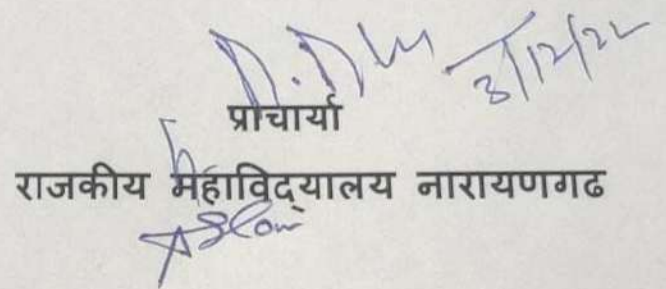 3/12/22
प्राचार्या
राजकीय महाविद्यालय नारायणगढ